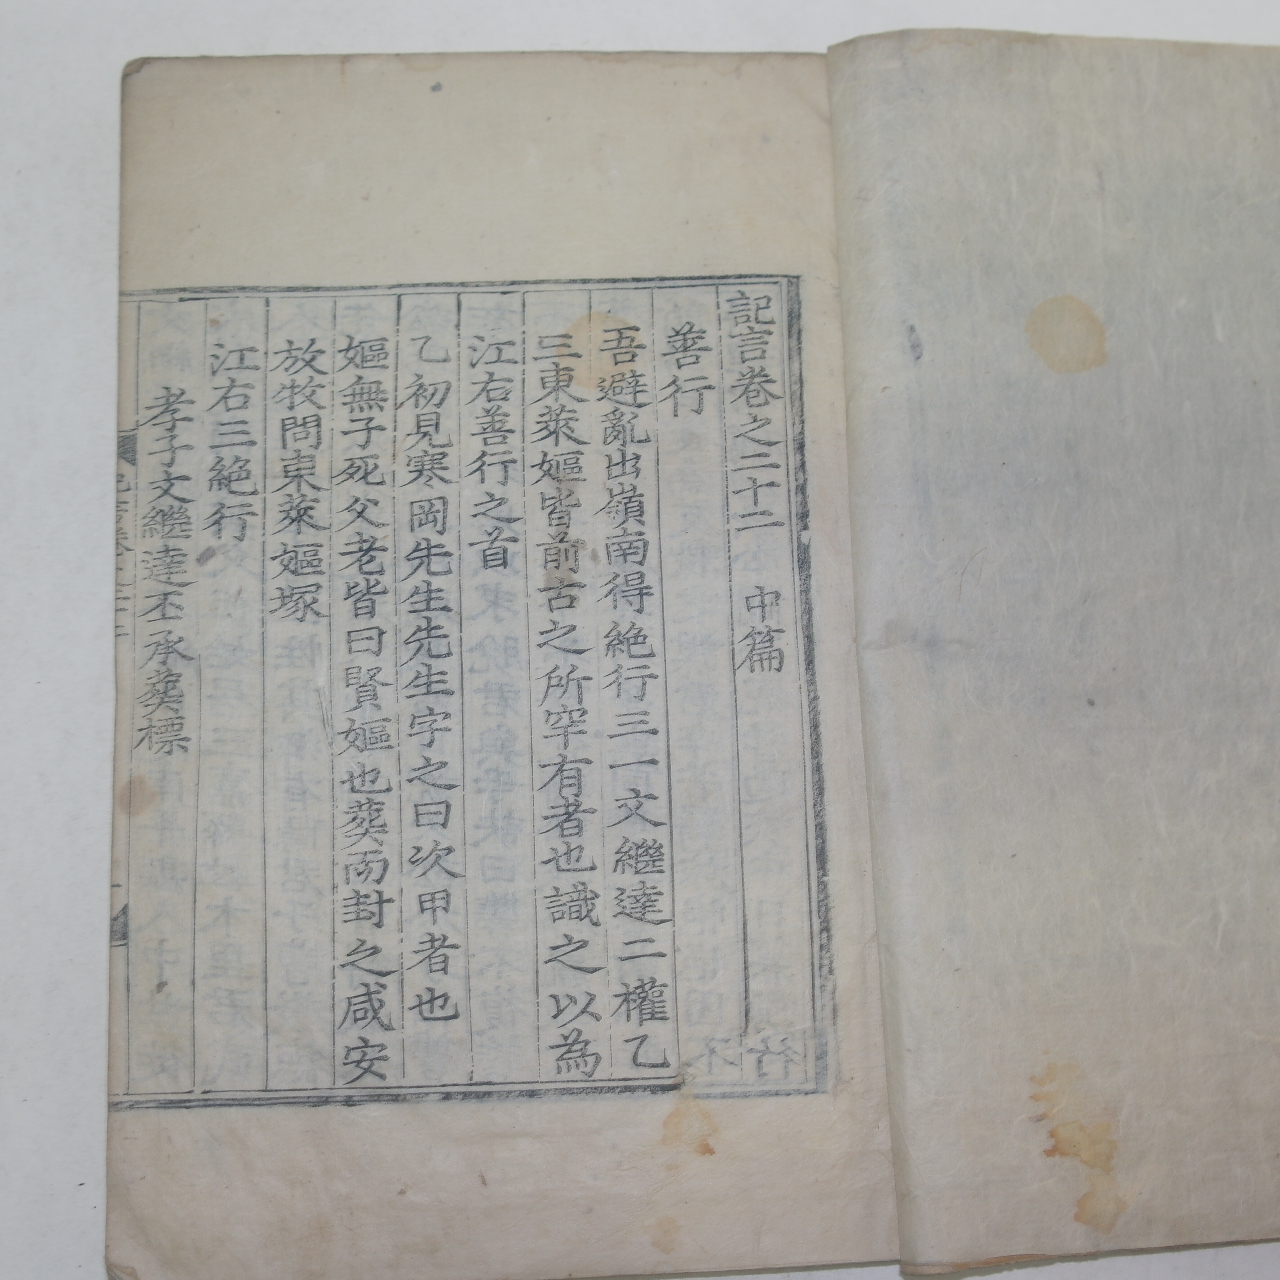 記言卷之二十二 中篇
善行
吾避亂出嶺南得絶行三一文繼達二權乙
三東萊嫗皆前古之所罕有者也識之以為
江右善行之首
乙初見寒岡先生先生字之曰次甲者也
嫗無子死父老皆曰賢嫗也葬而封之咸安
放牧問東萊嫗塚
江右三絶行
孝子文繼達丕承葬標